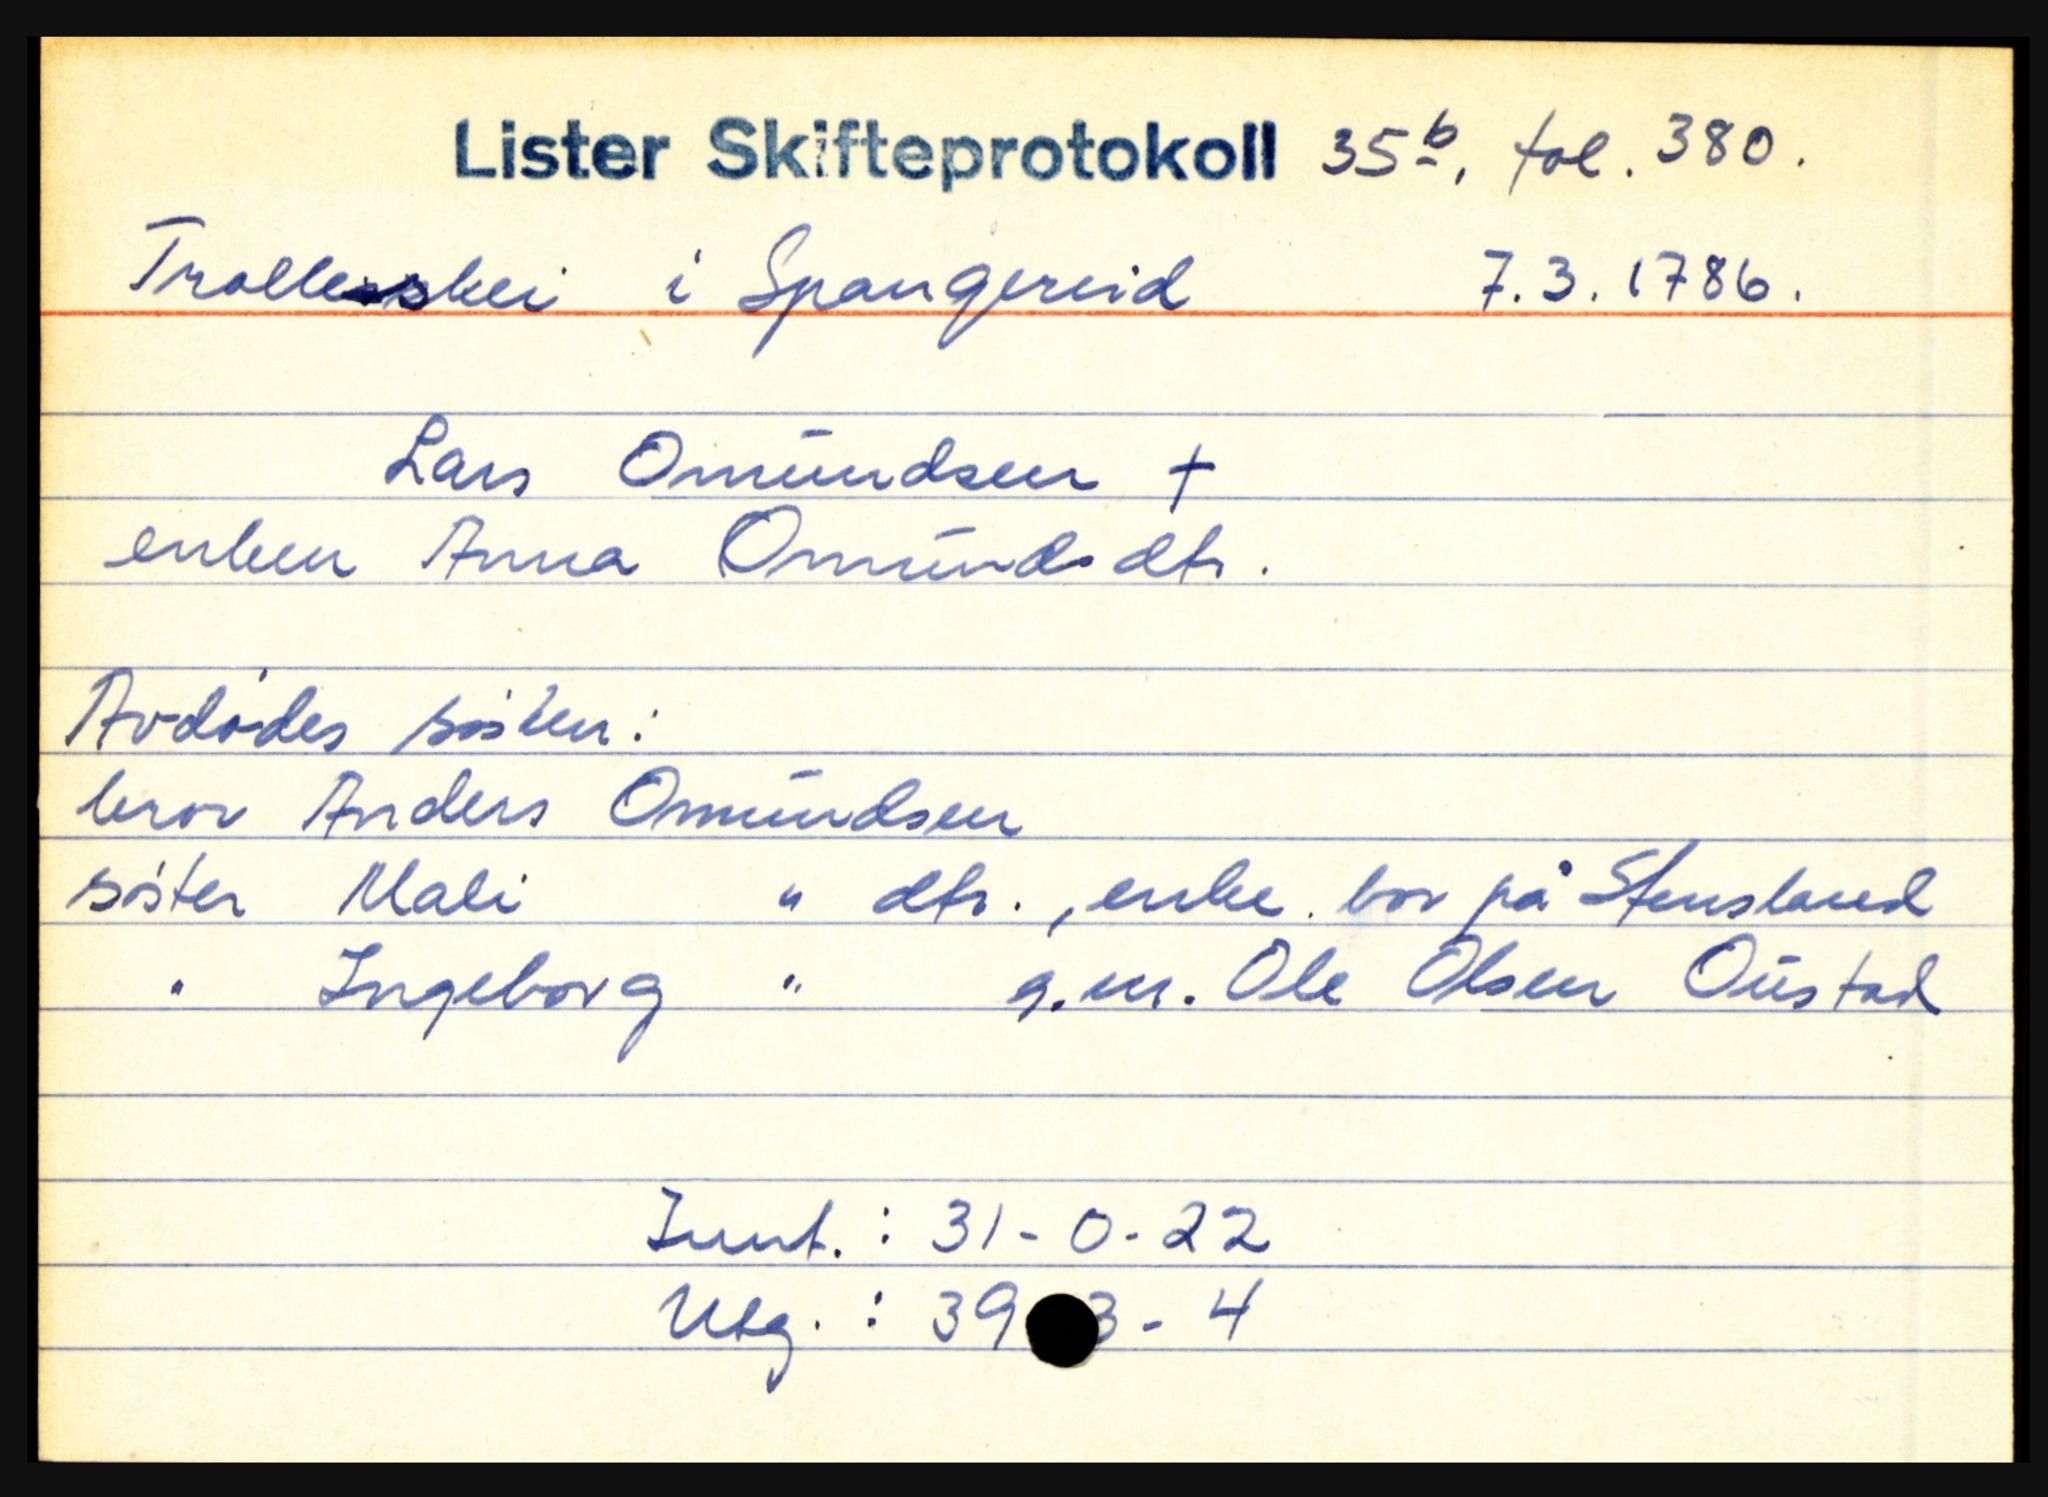 Lister Skifteprotokoll 35b, fol. 380.
i Spangereid 7.3.1786.
Lars Omundsen †
enken Anna Omundsdtr.
Avdødes søsken:
bror Anders Omundsen
søster Mali " dtr., enke. bor på Stensland
" Ingeborg " g.m. Ole Olsen Oustad
Innt.: 31-0-22
Utg.: 39 3-4